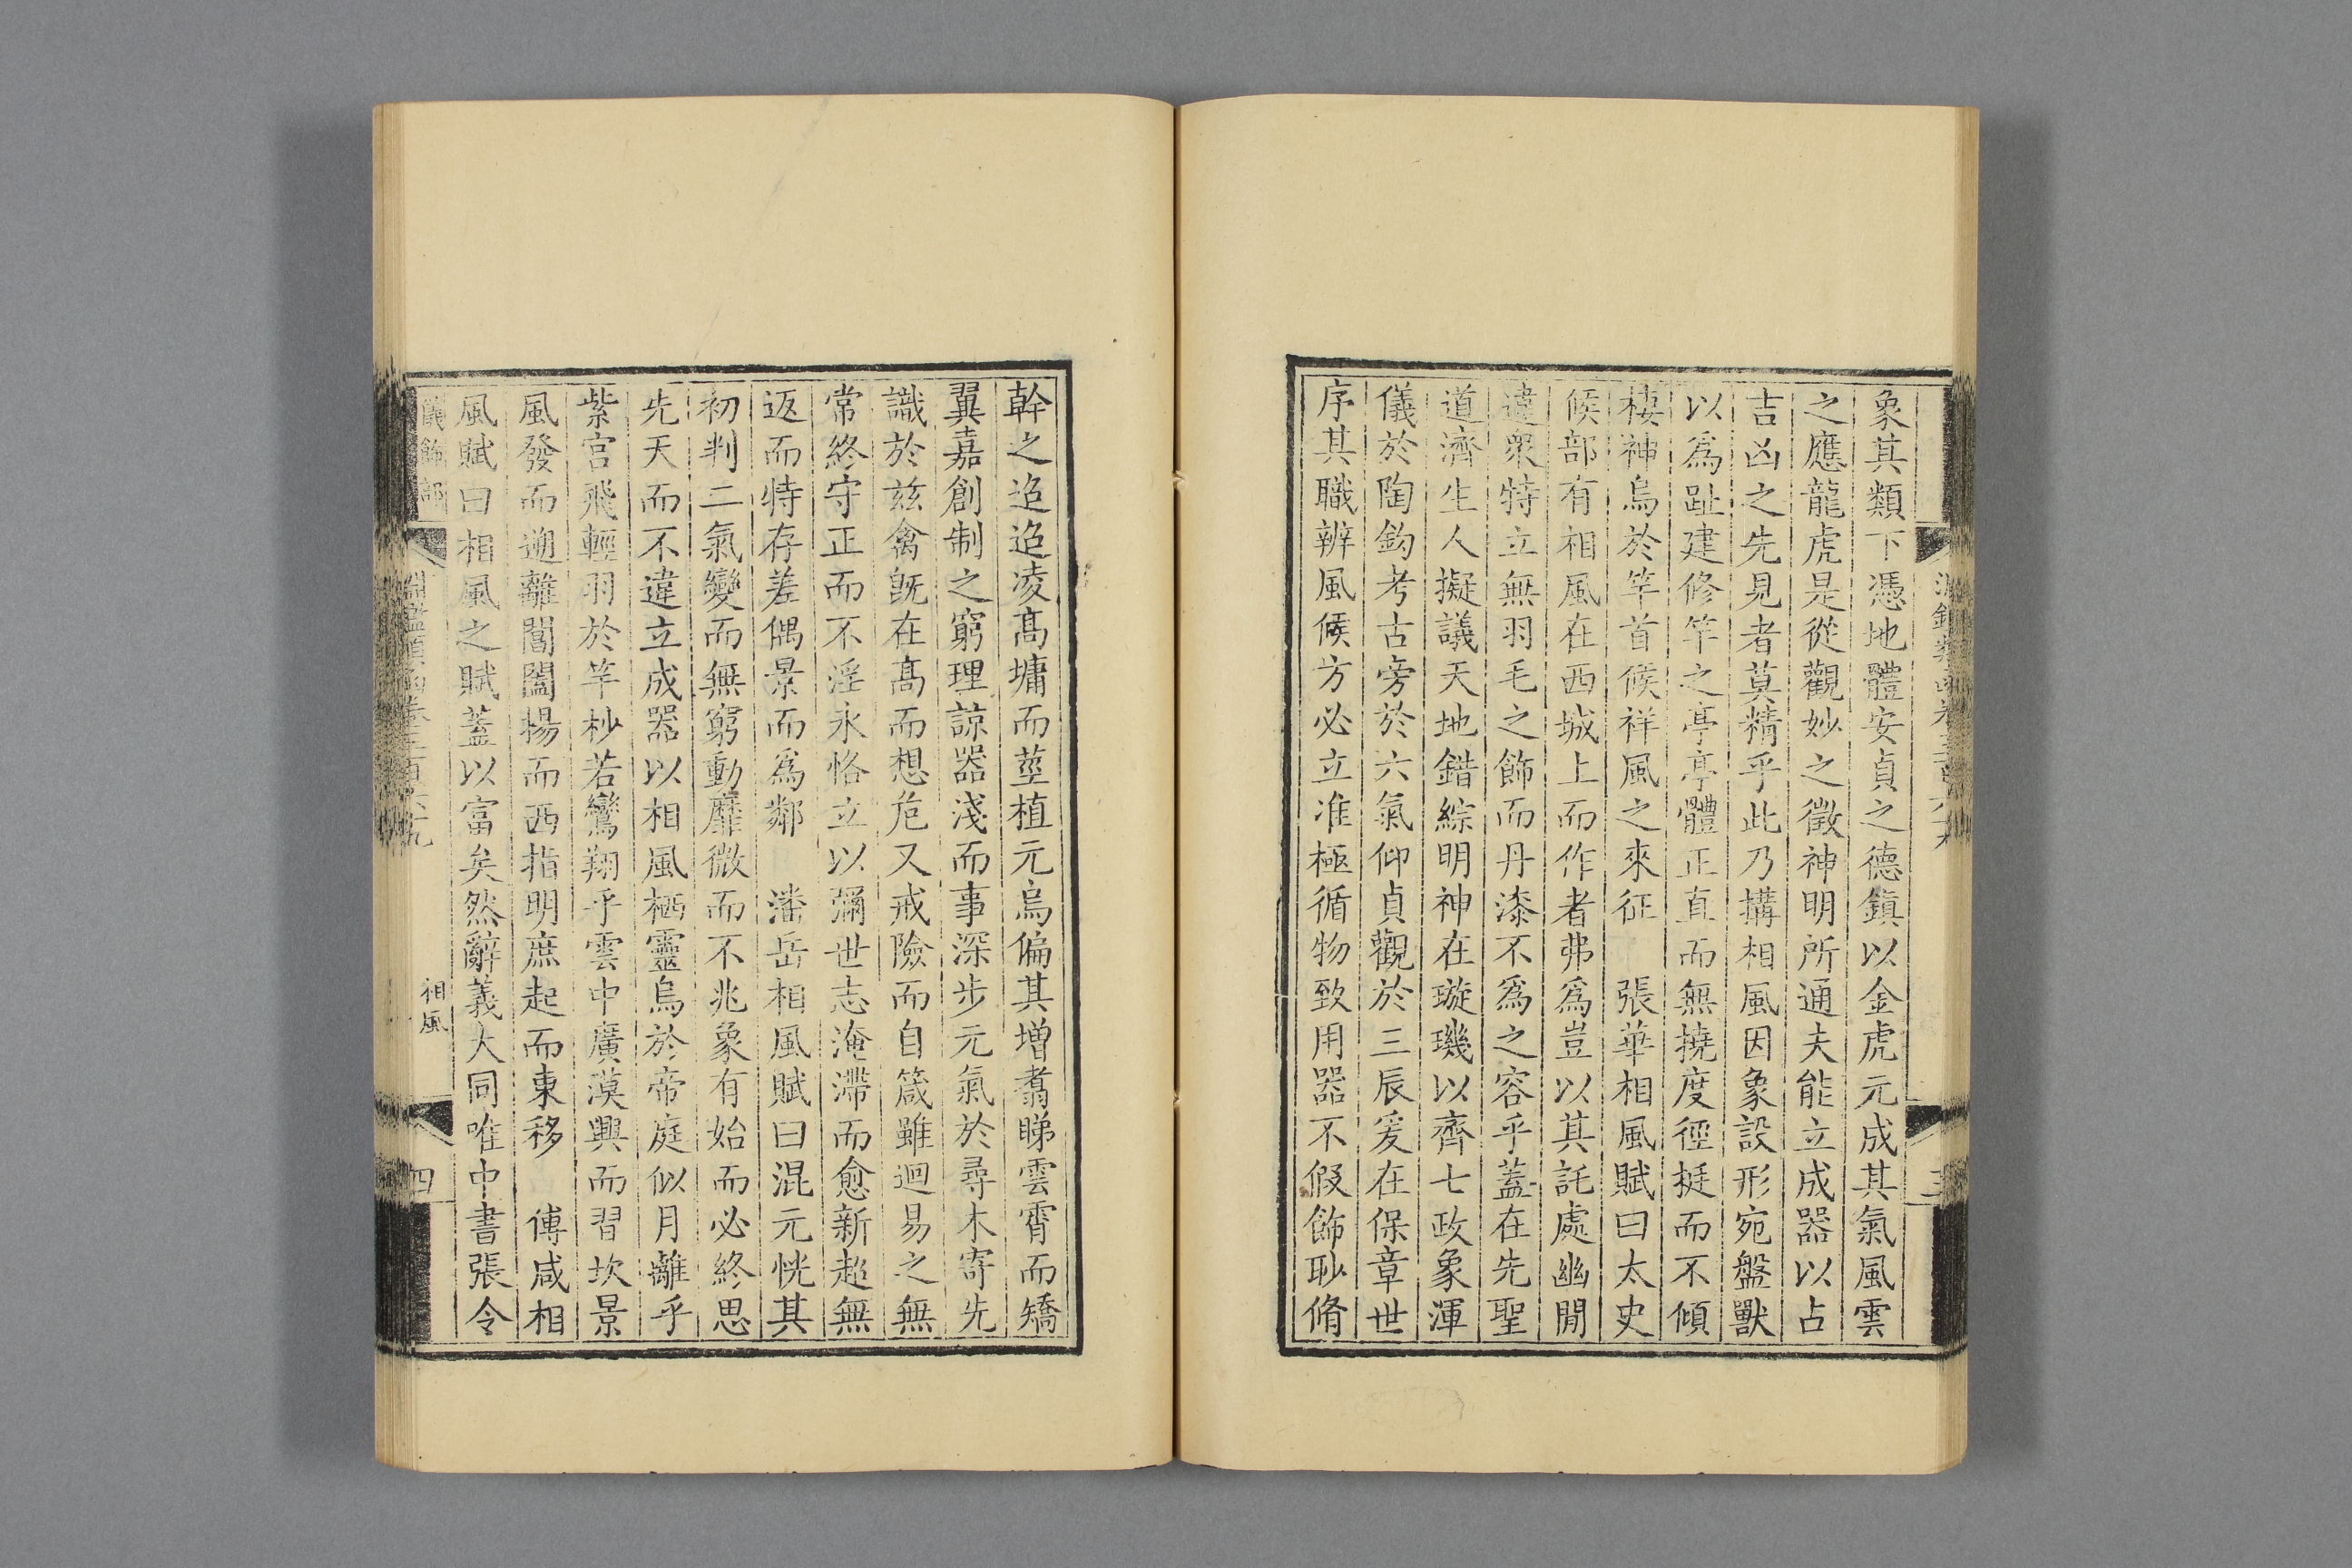 象其類下憑地體安貞之德鎮以金虎元成其氣風雲
之應龍虎是從觀妙之徵神明所通夫能立成器以占
吉凶之先見者莫精乎此乃搆相風因象設形宛盤獸
以爲趾建修竿之亭亭體正直而無撓度徑挺而不傾
棲神烏於竿首候祥風之來征 張華相風賦曰太史
候部有相風在西城上而作者弗爲豈以其託處幽閒
違衆特立無羽毛之飾而丹漆不爲之容乎蓋在先聖
道濟生人擬議天地錯綜明神在璇璣以齊七政象渾
儀於陶鈞考古旁於六氣仰貞觀於三辰爰在保章世
序其職辨風候方必立准極循物致用器不假飾眇脩
幹之迢迢凌髙墉而莖植元烏偏其增翥睇雲霄而矯
翼嘉創制之窮理諒器淺而事深步元氣於尋木寄先
識於兹禽旣在髙而想危又戒險而自箴雖迴易之無
常終守正而不淫永恪立以彌世志淹滯而愈新超無
返而特存差偶景而爲鄰 潘岳相風賦曰混元恍其
初判二氣變而無窮動靡微而不兆象有始而必終思
先天而不違立成器以相風栖靈烏於帝庭似月離乎
紫宫飛輕羽於竿杪若鸞翔乎雲中廣漠興而習坎景
風發而遡離閶闔揚而西指明庶起而東移 傅咸相
風賦曰相風之賦蓋以富矣然辭義大同唯中書張令
儀飾部
淵鑑類函卷三百六九
相風
四